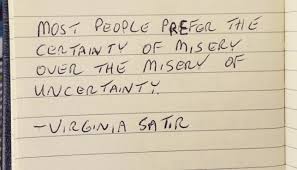 MOST PEOPLE PREFER THE
CERTAINTY OF MISERY
OVER THE MISERY OF
UNCERTAINTY.
-VIRGINIA SATIR